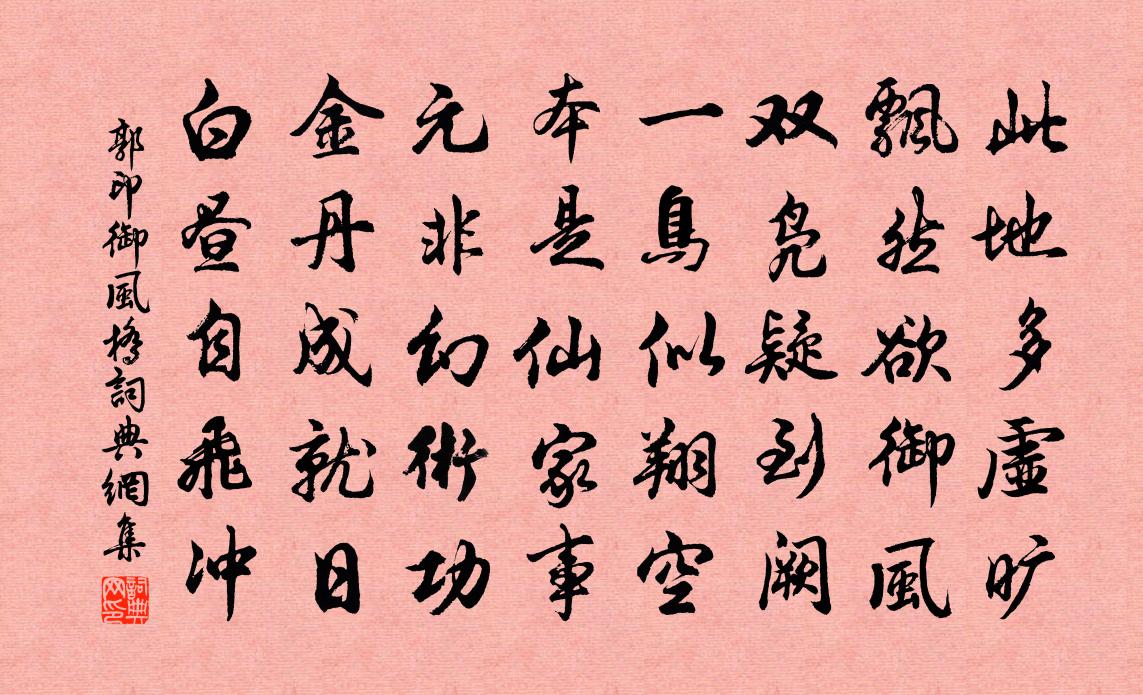 此地多虛旷
飄然欲御風
双凫疑到阙
一鳥似翔空
本是仙家事
元非幻術功
金丹成就日
白昼自飛冲
郭印御風橋詞典網集
詞典网印